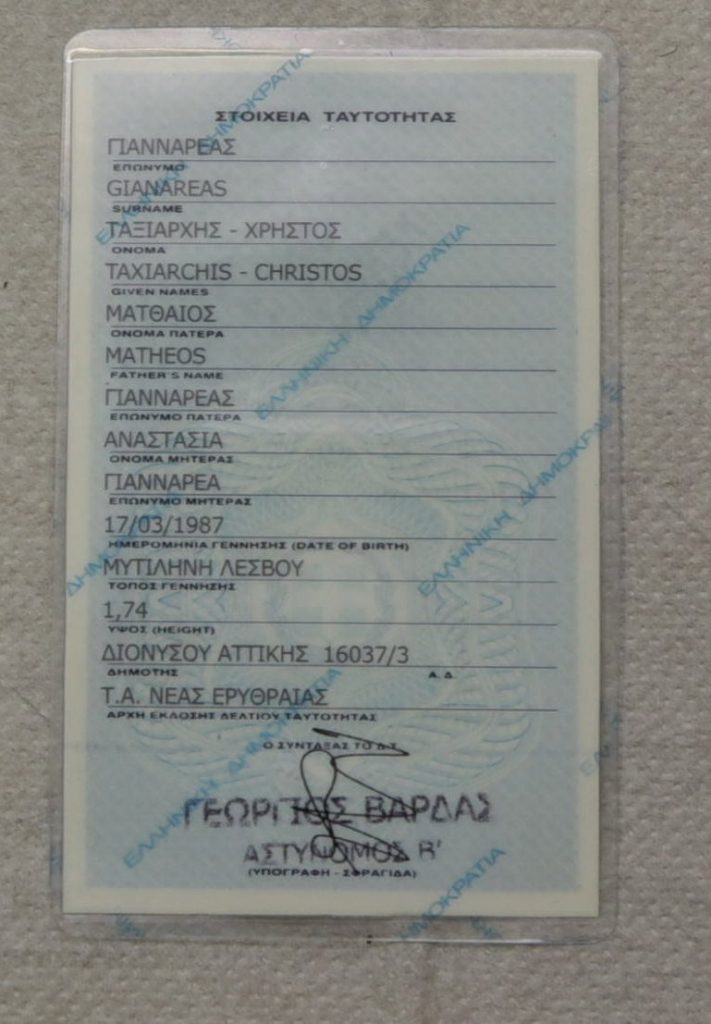 ΣΤΟΙΧΕΙΑ ΤΑΥΤΟΤΗΤΑΣ
ΓΙΑΝΝΑΡΕΑΣ
ΕΠΩΝΥΜΟ
GIANAREAS
SURNAME
ΤΑΞΙΑΡΧΗΣ - ΧΡΗΣΤΟΣ
ΟΝΟΜΑ
TAXIARCHIS - CHRISTOS
GIVEN NAMES
ΜΑΤΘΑΙΟΣ
ΟΝΟΜΑ ΠΑΤΕΡΑ
MATHEOS
FATHER'S NAME
ΓΙΑΝΝΑΡΕΑΣ
ΕΠΩΝΥΜΟ ΠΑΤΕΡΑ
ΑΝΑΣΤΑΣΙΑ
ΟΝΟΜΑ ΜΗΤΕΡΑΣ
ΓΙΑΝΝΑΡΕΑ
ΕΠΩΝΥΜΟ ΜΗΤΕΡΑΣ
17/03/1987
ΗΜΕΡΟΜΗΝΙΑ ΓΕΝΝΗΣΗΣ (DATE OF BIRTH)
ΜΥΤΙΛΗΝΗ ΛΕΣΒΟΥ
ΤΟΠΟΣ ΓΕΝΝΗΣΗΣ
1,74
ΥΨΟΣ (HEIGHT)
ΔΙΟΝΥΣΟΥ ΑΤΤΙΚΗΣ 16037/3
ΔΗΜΟΤΗΣ Α.Δ.
Τ.Α. ΝΕΑΣ ΕΡΥΘΡΑΙΑΣ
ΑΡΧΗ ΕΚΔΟΣΗΣ ΔΕΛΤΙΟΥ ΤΑΥΤΟΤΗΤΑΣ
Ο ΣΥΝΤΑΞΑΣ ΤΟ Δ.Τ.
ΓΕΩΡΓΙΟΣ ΒΑΡΔΑΣ
ΑΣΤΥΝΟΜΟΣ Β'
(ΥΠΟΓΡΑΦΗ - ΣΦΡΑΓΙΔΑ)
ΔΗΜΟΚΡΑΤΙΑ
ΕΛΛΗΝΙΚΗ ΔΗΜΟΚΡΑΤΙΑ
ΕΛΛΗΝΙΚΗ ΔΗΜΟΚΡΑΤΙΑ
ΕΛΛΗΝΙΚΗ ΔΗΜΟΚΡΑΤΙΑ